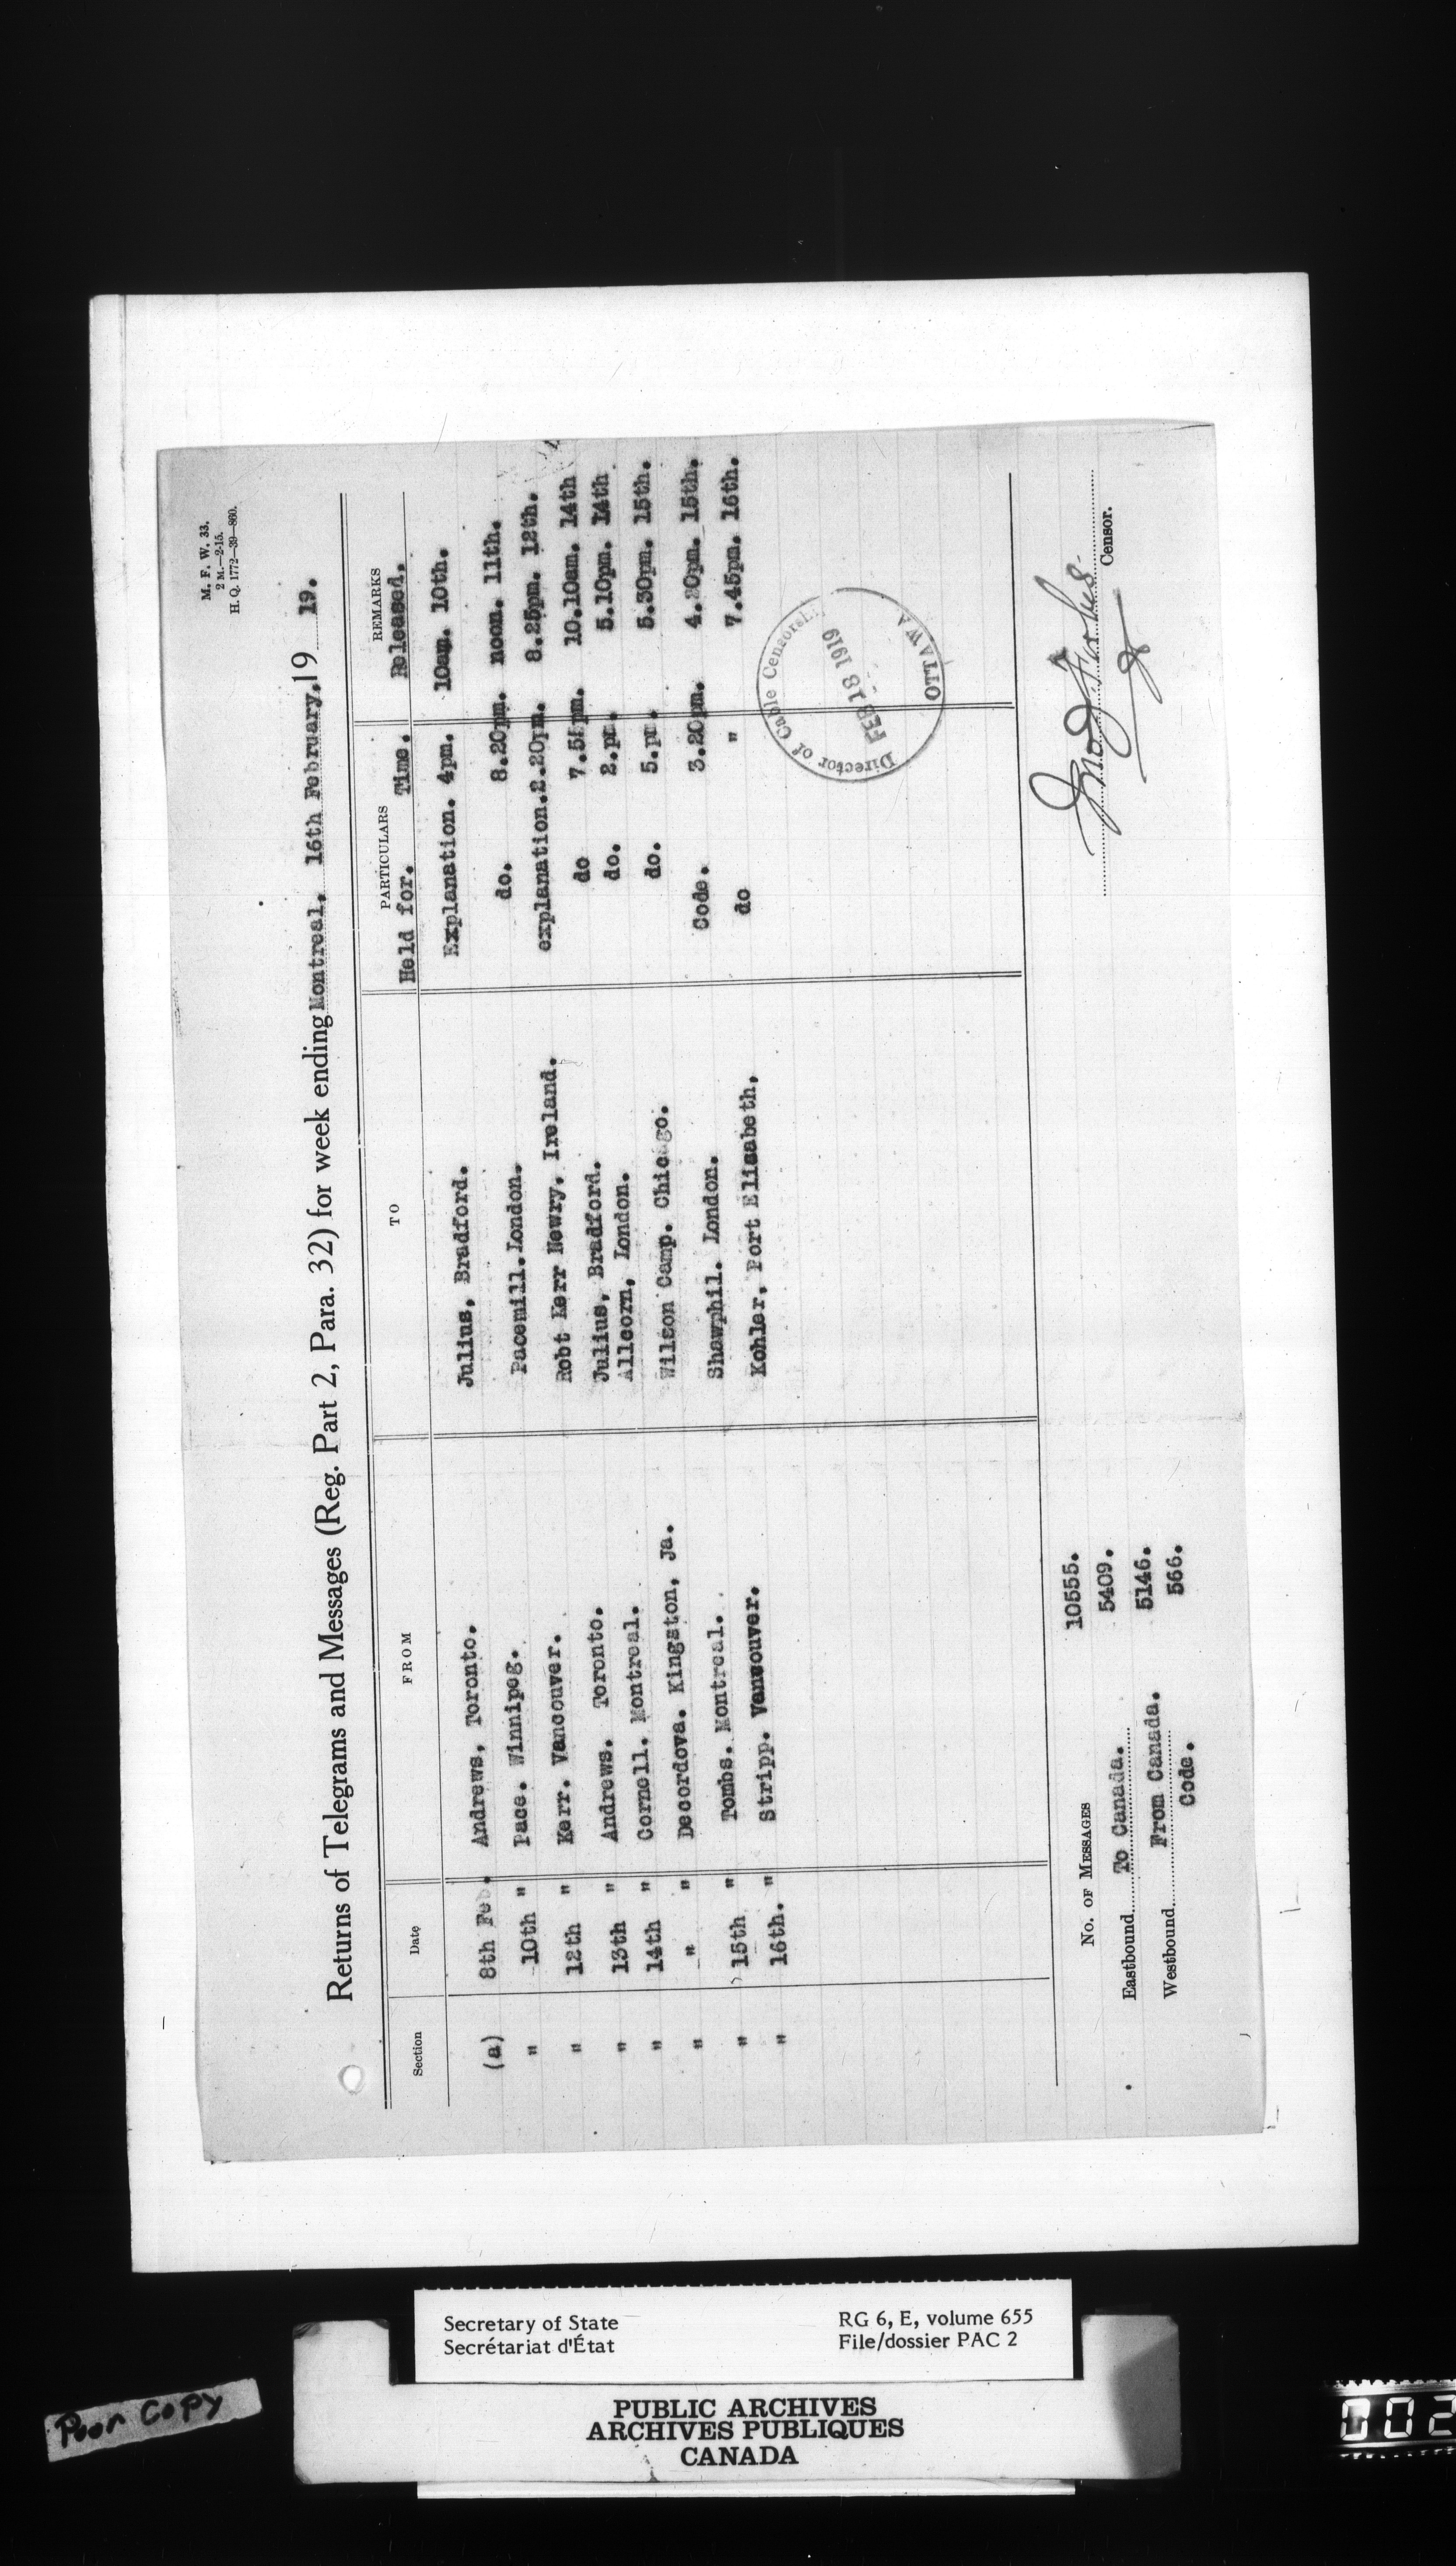 M. F. W. 33.
2 M.—2-15.
H. Q. 1772-39-860.
Returns of Telegrams and Messages (Reg. Part 2, Para. 32) for week ending Montreal, 16th February, 19 19.
Section Date FROM TO PARTICULARS REMARKS
Held for. Time. Released.
(a) 8th Feb. Andrews, Toronto. Julius, Bradford. Explanation. 4pm. 10am. 10th.
" 10th " Pace. Winnipeg. Pacemill. London. do. 8.20pm. noon. 11th.
" 12th " Kerr. Vancouver. Robt Kerr Newry. Ireland. explanation. 2.20pm. 8.25pm. 12th.
" 13th " Andrews. Toronto. Julius, Bradford. do 7.55pm. 10.10am. 14th
" 14th " Cornell. Montreal. Allcorn, London. do. 2.pm. 5.10pm. 14th
" " " Decordova. Kingston, Ja. Wilson Camp. Chicago. do. 5.pm. 5.30pm. 15th.
" 15th " Tombs. Montreal. Shawphil. London. Code. 3.20pm. 4.20pm. 15th.
" 16th. " Stripp. Vancouver. Kohler, Port Elizabeth, do " 7.45pm. 16th.
Director of Cable Censorship
FEB 18 1919
OTTAWA
No. OF MESSAGES 10555.
Eastbound To Canada. 5409.
Westbound From Canada. 5146.
Code. 566.
Censor.
Secretary of State
Secrétariat d'État
RG 6, E, volume 655
File/dossier PAC 2
Poor Copy
PUBLIC ARCHIVES
ARCHIVES PUBLIQUES
CANADA
002